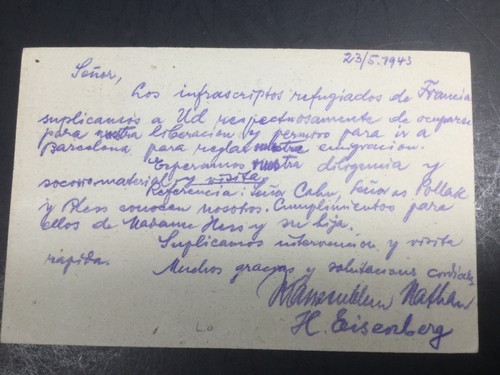 23/5.1943
Señor,
Los infrascriptos refugiados de Francia
suplicamos a Ud respectuosamente de ocuparse
para nstra liberacion y permiso para ir a
Barcelona para reglar nstra emigracion.
Esperamos nstra diligencia y
socorro material y visita
Referencia: Sña Cahn, Sñas Pollak
y Hess conocen nosotros. Cumplimientos para
ellos de Madame Hess y su hija.
Suplicamos intervencion y visita
rapida.
Muchos gracias y salutacions cordiales
Nathan
H. Eisenberg